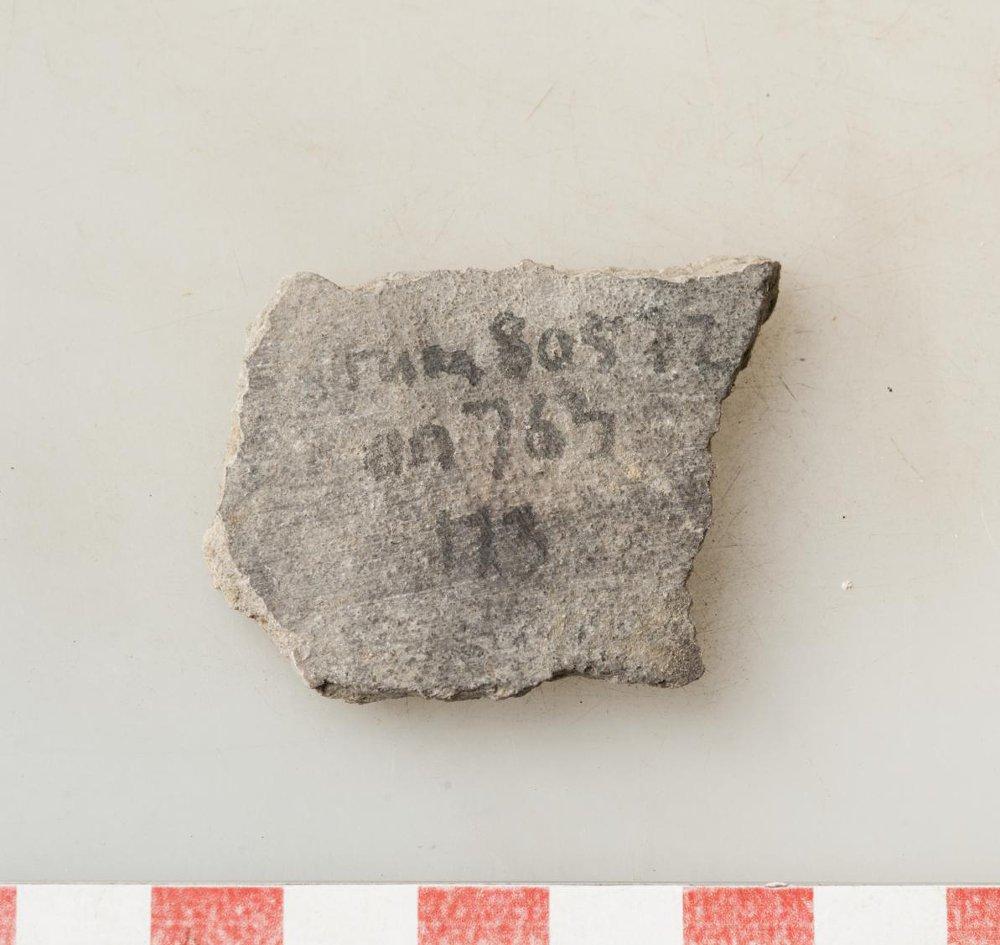 rum 80572
an 763
173